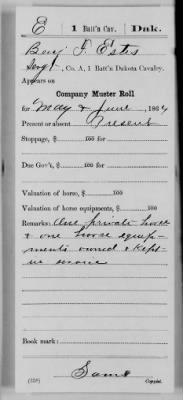 E | 1 Batt'n Cav. | Dak.
Benj F. Estes
Sergt, Co. A, 1 Batt'n Dakota Cavalry.
Appears on
Company Muster Roll
for May & June, 1864
Present or absent Present
Stoppage, $ 100 for
Due Gov't, $ 100 for
Valuation of horse, $ 100
Valuation of horse equipments, $ 100
Remarks: One private horse
& one horse equip-
ments owned & kept
in service
Book mark:
Sams
(358) Copyist.